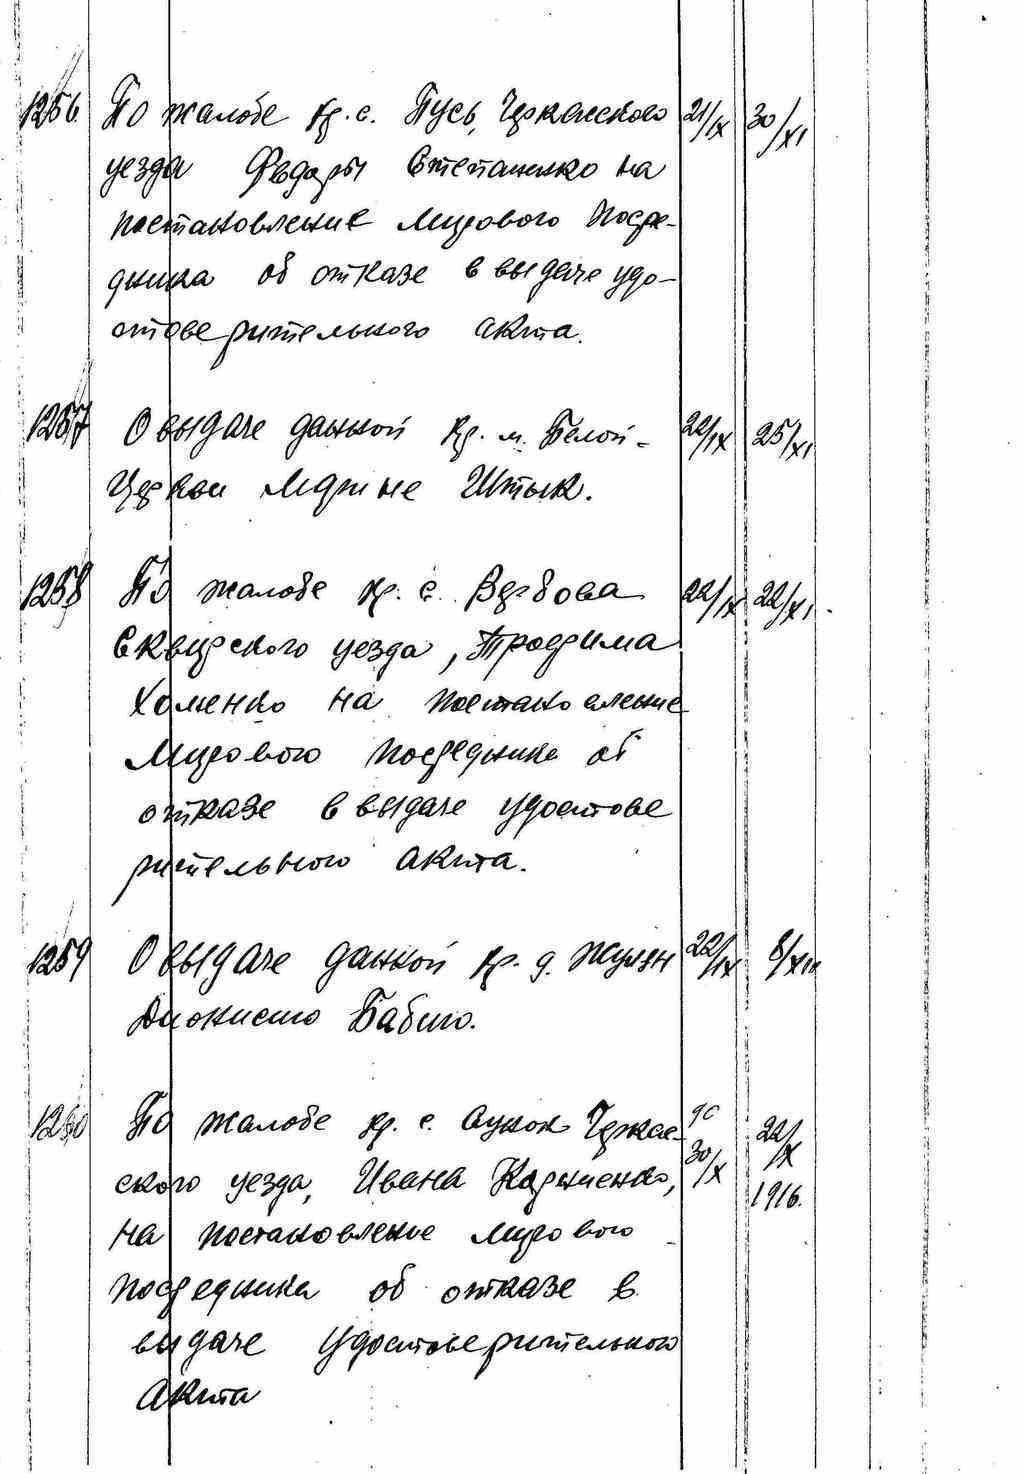 1256 По жалобе кр. с. Пусь, Черкасского 21/IX 30/XI
уезда Федоры Степаненко на
постановление Мирового Посре-
дника об отказе в выдаче удо-
стоверительного акта.
1257 О выдаче данной кр. м. Белой- 22/IX 25/XI
Церкви Марине Штык.
1258 По жалобе кр. с. Вербова 22/IX 22/XI
Сквирского уезда, Трофима
Хоменко на постановление
Мирового Посредника об
отказе в выдаче удостове
рительного акта.
1259 О выдаче данной кр. д. Жулян 22/IX 8/XII
Дионисию Бабию.
1260 По жалобе кр. с. Черкас- 30/X 22/IX 1916.
ского уезда, Ивана Корниенко,
на постановление Мирового
Посредника об отказе в
выдаче удостоверительного
акта